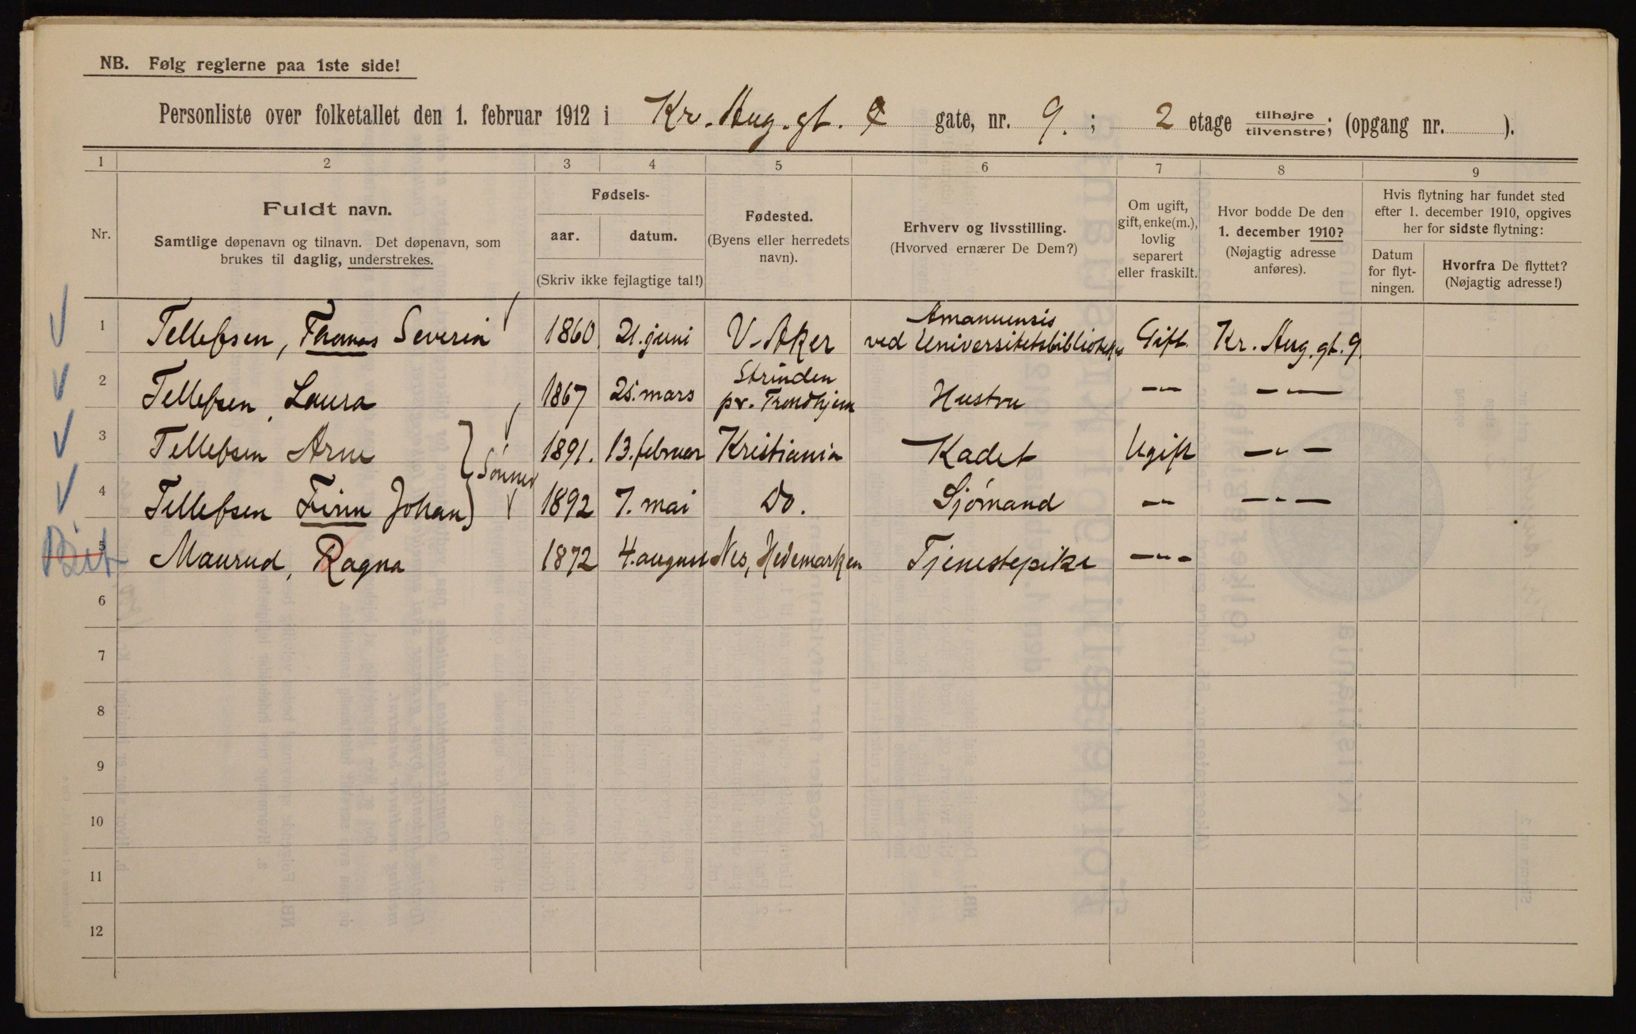 NB. Følg reglerne paa 1ste side!
Personliste over folketallet den 1. februar 1912 i Kr. Aug. gt. gate, nr. 9. ; 2 etage tilhøjre / tilvenstre; (opgang nr. ).
1 2 3 4 5 6 7 8 9
Nr.
Fuldt navn.
Samtlige døpenavn og tilnavn. Det døpenavn, som
brukes til daglig, understrekes.
Fødsels-
aar. datum.
(Skriv ikke fejlagtige tal!)
Fødested.
(Byens eller herredets
navn).
Erhverv og livsstilling.
(Hvorved ernærer De Dem?)
Om ugift,
gift, enke(m.),
lovlig
separert
eller fraskilt.
Hvor bodde De den
1. december 1910?
(Nøjagtig adresse
anføres).
Hvis flytning har fundet sted
efter 1. december 1910, opgives
her for sidste flytning:
Datum
for flyt-
ningen.
Hvorfra De flyttet?
(Nøjagtig adresse!)
1 Tellefsen, Thomas Severin 1860 21. juni V. Aker Amanuensis ved Universitetsbiblioteket Gift Kr. Aug. gt. 9.
2 Tellefsen, Laura 1867 25. mars Strinden pr. Trondhjem Hustru —"— —"—
3 Tellefsen Arne 1891. 13. februar Kristiania Kadet Ugift —"—
Sønner
4 Tellefsen Finn Johan 1892 7. mai Do. Sjømand —"— —"—
5 Maurud, Ragna 1872 4. august Nes, Hedemarken Tjenestepike —"—
6
7
8
9
10
11
12